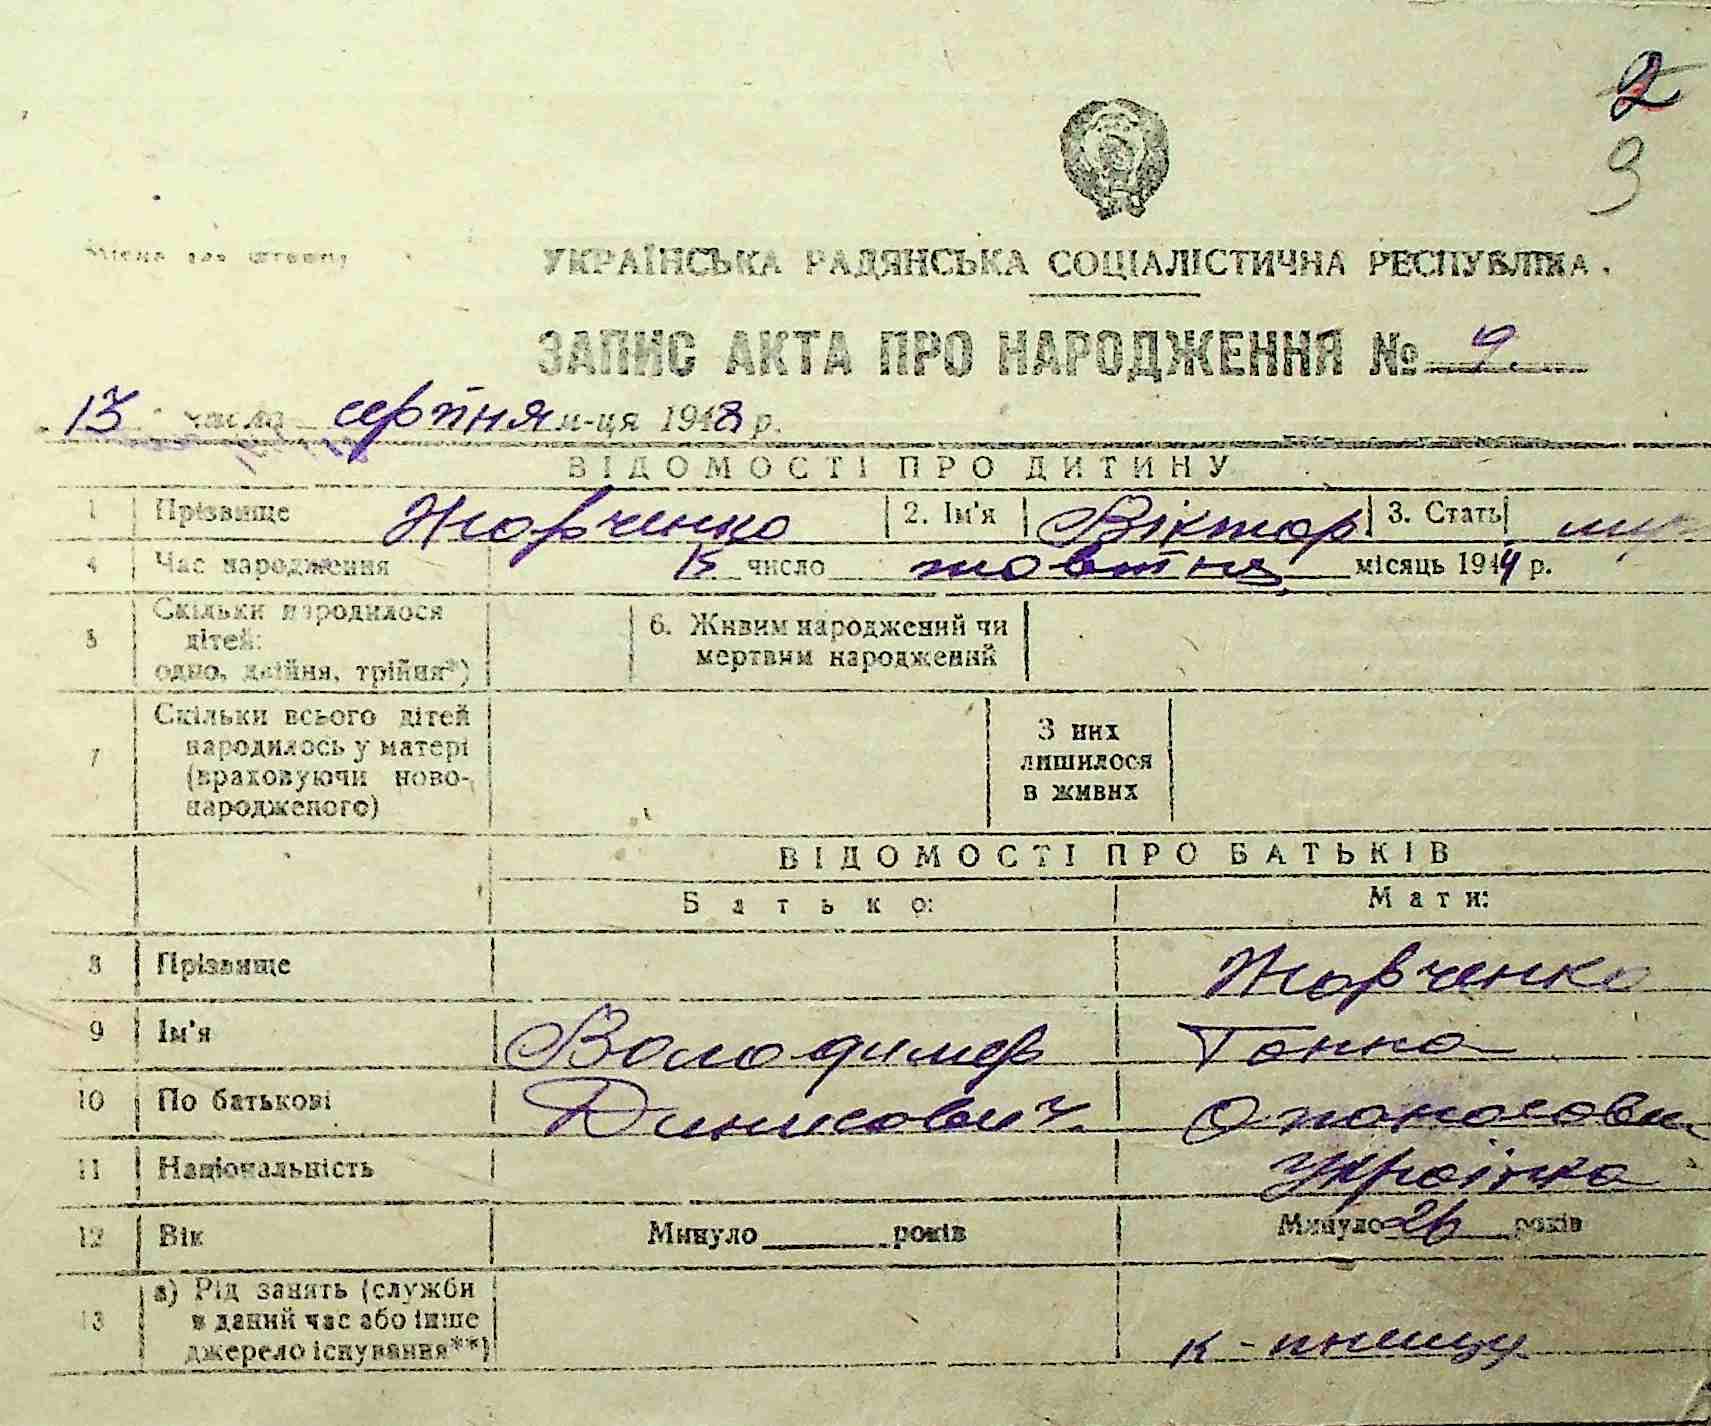 2
9
Місце для штампу
УКРАЇНСЬКА РАДЯНСЬКА СОЦІАЛІСТИЧНА РЕСПУБЛІКА.
ЗАПИС АКТА ПРО НАРОДЖЕННЯ № 9.
13 числа серпня м-ця 1948 р.
ВІДОМОСТІ ПРО ДИТИНУ
1 Прізвище Жовченко 2. Ім'я Віктор 3. Стать
4 Час народження 15 число жовтня місяць 1944 р.
5 Скільки народилося
дітей:
одно, двійня, трійня*)
6. Живим народжений чи
мертвим народжений
7 Скільки всього дітей
народилось у матері
(враховуючи ново-
народженого)
З них
лишилося
в живих
ВІДОМОСТІ ПРО БАТЬКІВ
Батько: Мати:
8 Прізвище Жовченко
9 Ім'я Володимер Ганна
10 По батькові Динисович. Опанасовн
11 Національність Українка
12 Вік Минуло років Минуло 26 років
13 а) Рід занять (служби
в даний час або інше
джерело існування**)